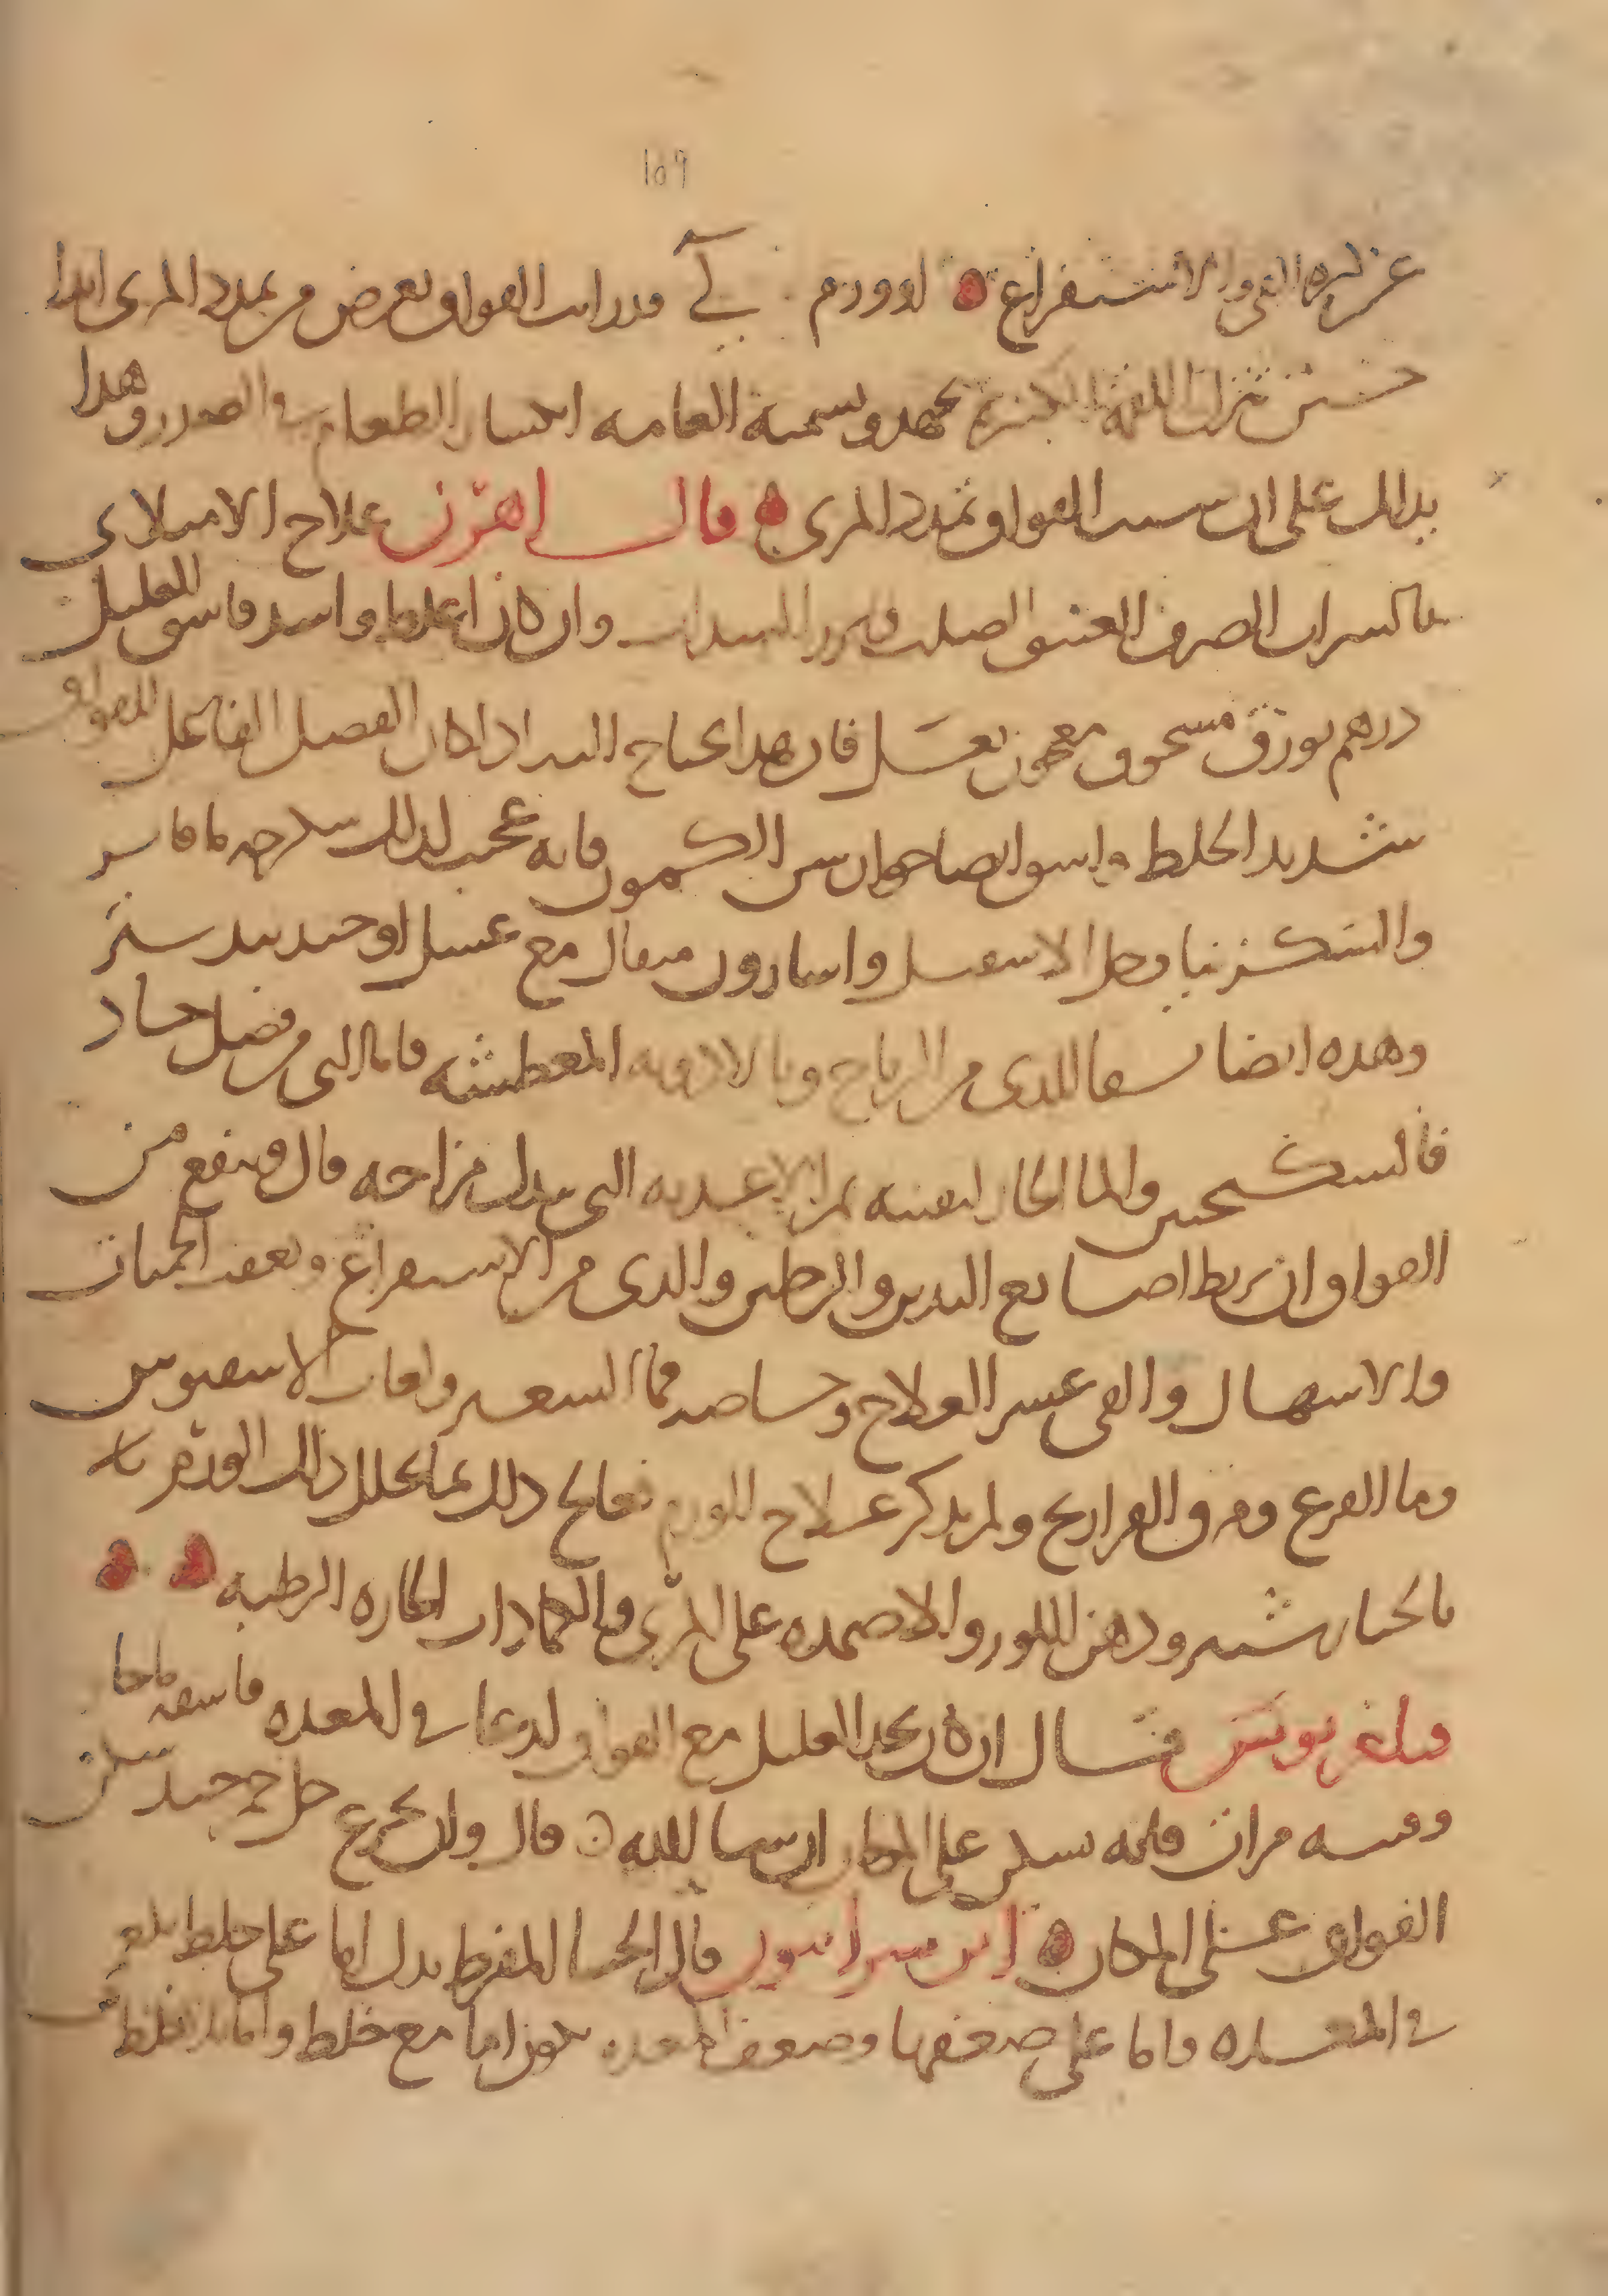 169
عن كثرة القي والاستفراغ او ورم لي قد رايت الفواق يعرض من تمدد المري ابدا
حتى تنزل اللقمة الكبيرة بجهد ويسميه العامة انكسار الطعام في الصدر وهذا
يدلك على ان سبب الفواق تمدد المري قال اهرن علاج الامتلاي
بالشراب الصرف العتيق اصلت فيه بزر السداب وان كان اغلظ واشد فاسق العليل
درهم بورق مسحوق معجون بعسل فان هذا يحتاج اليه اذا كان الفضل الفاعل للفواق
شديد الخلط واسق ايضا جوارش الكمون فانه عجيب لذلك بماء فاتر
والشكزنايا وخل الاسقيل واسارون مثقال مع عسل او جندبيدستر
وهذه ايضا شفا للذي من الرياح وبالادوية المعطشة فاما التي من فضل حاد
فالسكنجبين والما الحار ليقيه ثم الاغذية التي تبدل مزاجه قال وينفع من
الفواق ان تربط اصابع اليدين والرجلين والذي من الاستفراغ وتعقب الحميات
والاسهال والقي عسر العلاج وحساصه ما الشعير ولعاب الاسفيوس
وما القرع ومرق الفراريج ولم يذكر علاج الورم فعالج ذلك بما يحلل ذلك الورم
بالخيارشنبر ودهن اللوز والاضمدة على المري والكمادات الحارة الرطبة
فيلغريوس قال ان كان يجد العليل مع الفواق لذعا في المعدة فاسقه ماحا
وقيه مرات فانه يسكن على المكان ان شا الله قال وان تجرع خل خمر جيد سكن
الفواق على المكان ابن سرابيون قال الجشا المفرط يدل اما على خلط بلغم
في المعدة واما على ضعفها وضعف المعدة يكون اما مع خلط واما بلا خلط